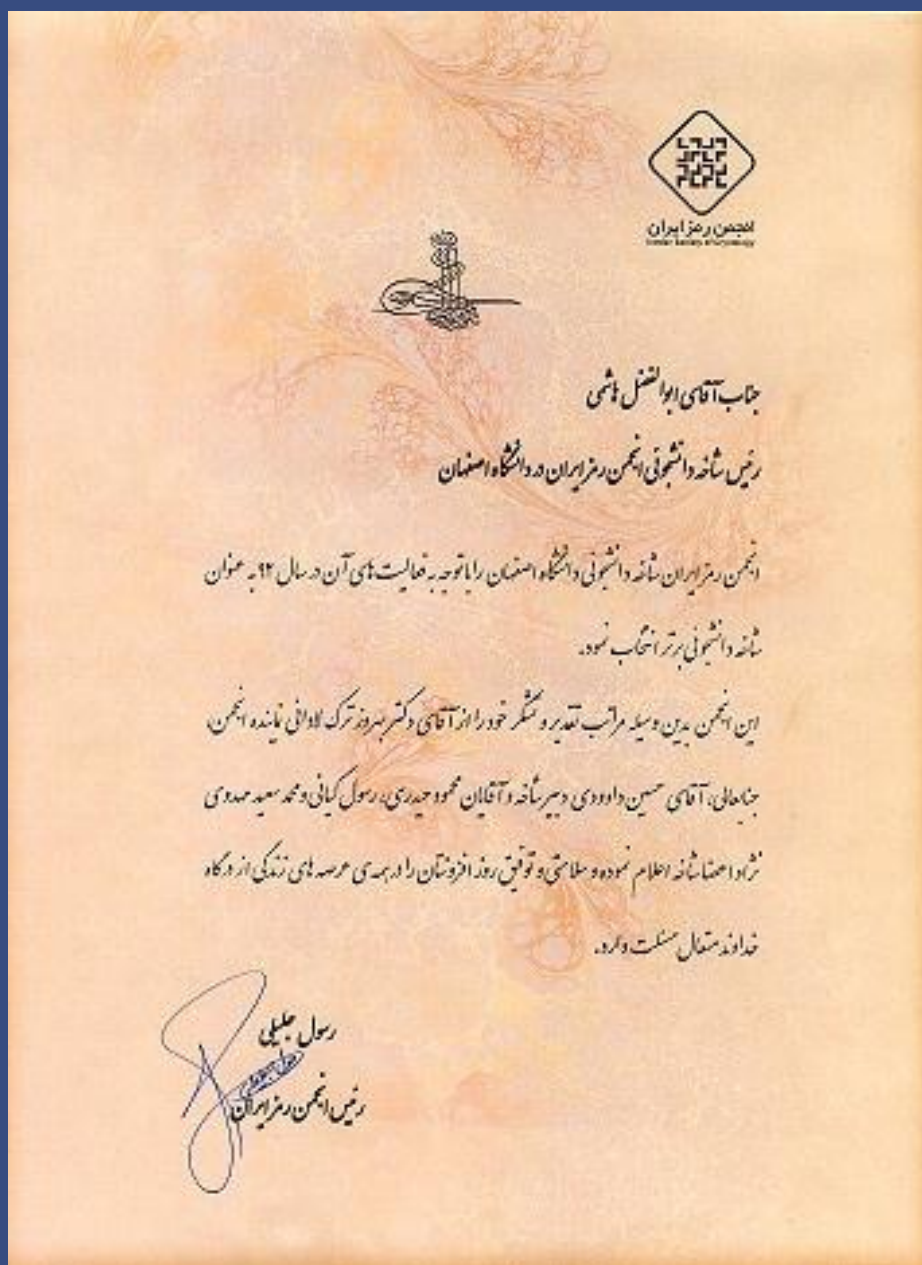 انجمن رمز ایران
Iranian Society of Cryptology
جناب آقای ابوالفضل هاشمی
رئیس شاخه دانشجوئی انجمن رمز ایران در دانشگاه اصفهان
انجمن رمز ایران شاخه دانشجوئی دانشگاه اصفهان را باتوجه به فعالیت های آن در سال ۹۲ به عنوان
شاخه دانشجوئی برتر انتخاب نمود.
این انجمن بدین وسیله مراتب تقدیر و تشکر خود را از آقای دکتر بهروز ترک لادانی نماینده انجمن،
جنابعالی، آقای حسین داودی دبیر شاخه و آقایان محمود حیدری، رسول کیانی و محمد سعید مهدوی
نژاد اعضا شاخه اعلام نموده و سلامتی و توفیق روز افزونتان را در همه ی عرصه های زندگی از درگاه
خداوند متعال مسئلت دارد.
رسول جلیلی
رئیس انجمن رمز ایران